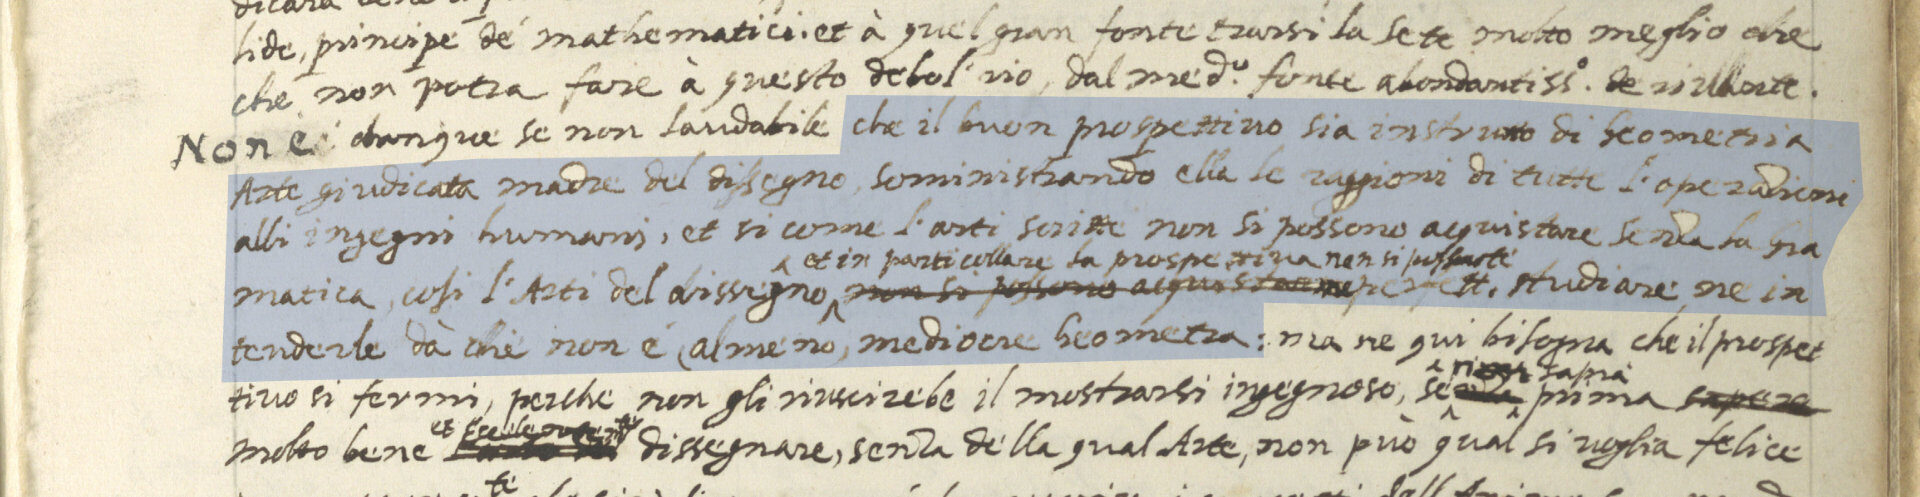 lide, principe de' mathematici. et à quel gran fonte trarsi la sete molto meglio che
che non potra fare à questo debol rio, dal med.º fonte abondantiss.º derivante.
Non è dunque se non laudabile che il buon prospettivo sia instrutto di Geometria
Arte giudicata madre del dissegno, somministrando ella le raggioni di tutte l'operationi
alli ingegni humani, et si come l'arti scritte non si possono acquistare senza la gra
et in particollare la prospettiva non si possano
matica, cosi l'Arti del dissegno, non si possono acquistar perfett. studiare, ne in
tenderle dà chè non è (almeno) mediocre Geometra: ma ne qui bisogna che il prospet
sapra
tivo si fermi, perche non gli riuscirebe il mostrarsi ingegnoso, se prima sapere
et
molto bene dissegnare, senza della qual Arte, non può qual si voglia felice
te